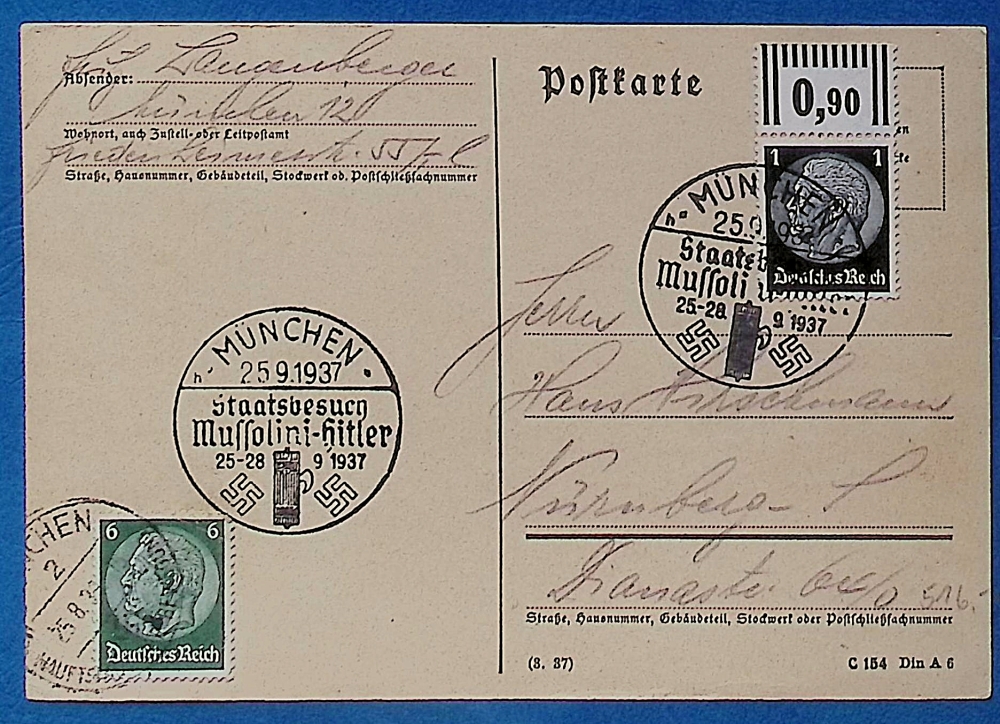 Langenberger
Absender:
München 12
Wohnort, auch Zustell- oder Leitpostamt
55/
Straße, Hausnummer, Gebäudeteil, Stockwerk od. Postschließfachnummer
Postkarte
0,90
1 1
Deutsches Reich
MÜNCHEN
25.9.1937
Staatsbesuch
Mussolini
25-28 9.1937
Herrn
Hans
Nürnberg - S
Dianastr.
Straße, Hausnummer, Gebäudeteil, Stockwerk oder Postschließfachnummer
(3. 37)
C 154 Din A 6
MÜNCHEN
h
25.9.1937
Staatsbesuch
Mussolini-Hitler
25-28 9.1937
6 6
Deutsches Reich
CHEN
2
25.8.3
HAUPTS